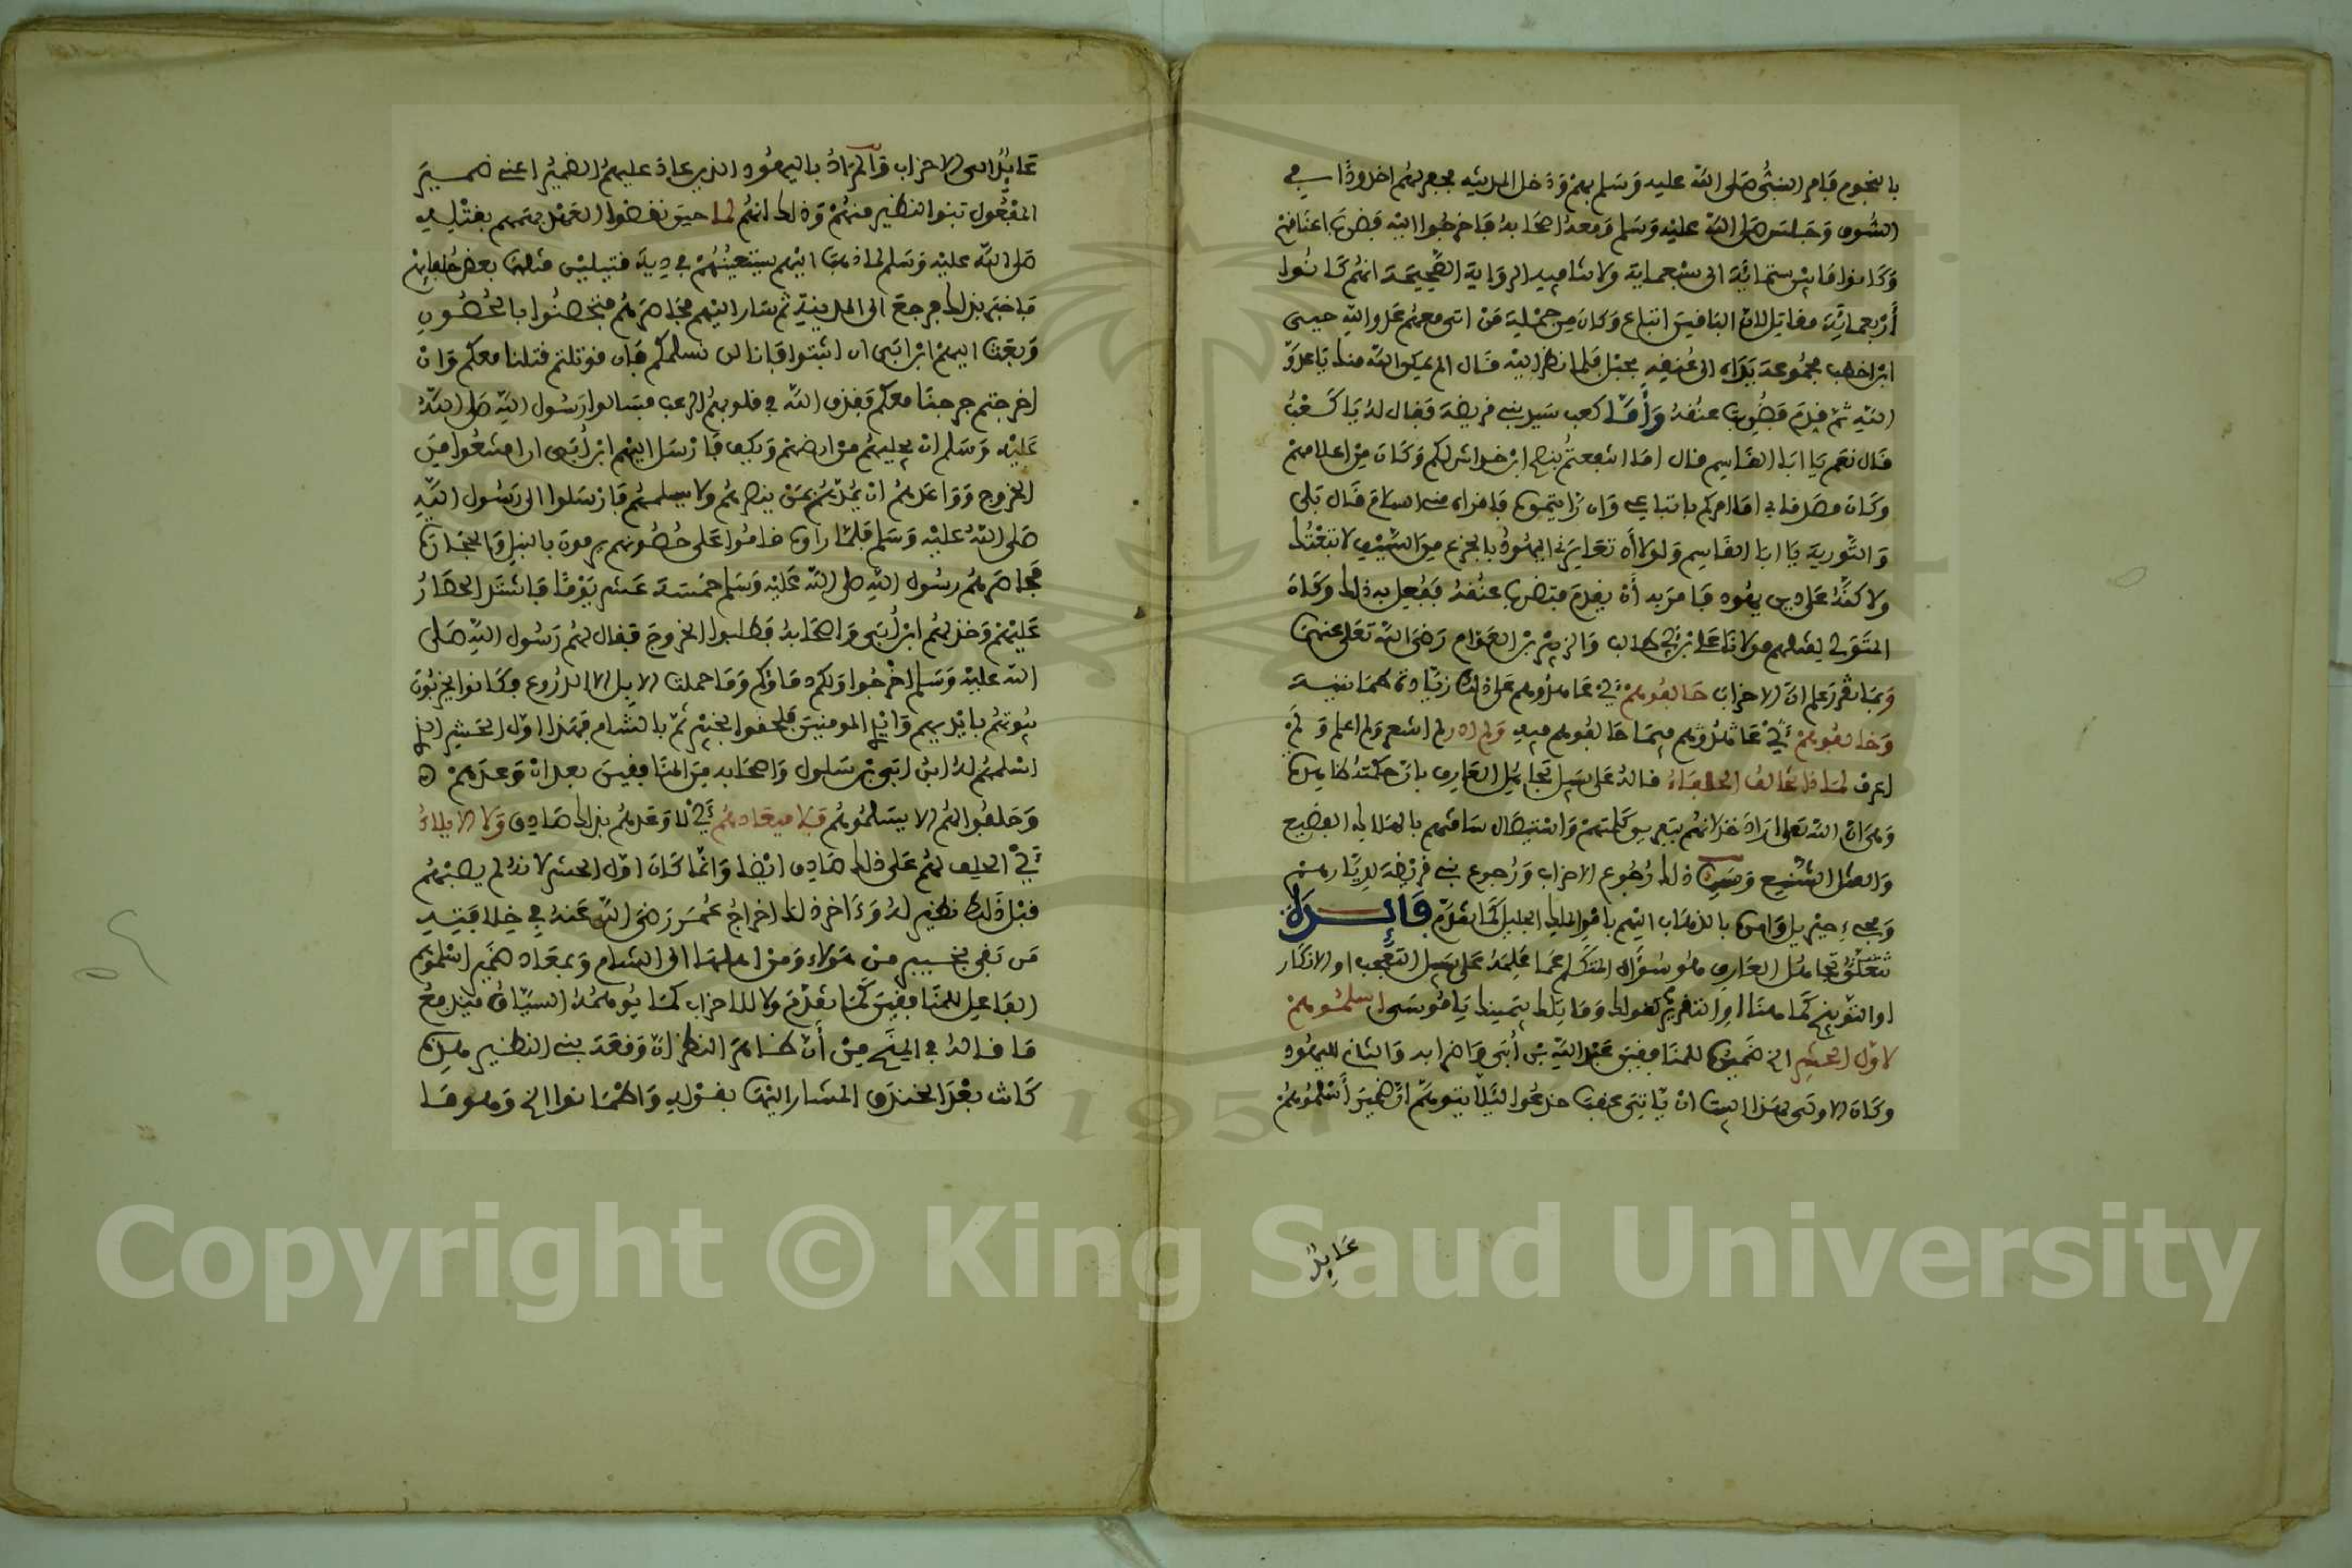 بالنجوم فامر النبي صلى الله عليه وسلم بهم ودخل المدينة فحفر لهم اخدودا في
السوق وجلس صلى الله عليه وسلم ومعه اصحابه فاخرجوا اليه فضرب اعناقهم
وكانوا ما بين ستمائة الى سبعماية ولا ينافيه الرواية الصحيحة انهم كانوا
أربعمائة مقاتل لان الباقين اتباع وكان من جملة من اتى معهم عدو الله حيى
ابن اخطب مجموعة يداه الى عنقه بحبل فلما نظر اليه قال الم يمكن الله منك يا عدو
الله ثم قدم فضربت عنقه وأما كعب سيد بنى قريظة فقال له يا كعب
قال نعم يا ابا القاسم قال اما انتفعتم بنصح ابن خراش لكم وكان من اعلامهم
وكان مصدقا بي اما امركم باتباعي وان رايتموني فاقراه مني السلام قال بلى
والتورية يا ابا القاسم ولولا أن تعايرني اليهود بالجزع من السيف لاتبعتك
ولاكنه على دين يهود فامر به أن يقدم فتضرب عنقه ففعل به ذلك وكان
المتولي لقتلهم مولانا علي ابن أبي طالب والزبير بن العوام رضي الله تعلى عنهما
وبما تقرر علم ان الاحزاب حالفوهم أي عاهدوهم على ذلك زيادة طمانينة
وخالفوهم أي عاندوهم فيما حالفوهم فيه ولم ادر لم اشعر ولم اعلم ولم
اعرف لماذا تخالف الحلفاء قاله على سبيل تجاهل العارف بان حكمته ظاهرة
وهي ان الله تعلى اراد خذلانهم بتفريق كلمتهم واستيصال شافتهم بالهلاك الفضيع
والقتل الشنيع وسبب ذلك رجوع الاحزاب ورجوع بني قريظة لديارهم
ومجيء جبريل بالذهاب اليهم بامر الملك الجليل كما تقدم فائدة
تتعلق بتجاهل العارف وهو سؤال المتكلم عما علمه على سبيل التعجب او الانكار
او التوبيخ كما هنا او التقرير كقوله وما تلك بيمينك يا موسى اسلموهم
لاول الحشر الخ ضمير للمنافقين عبد الله بن أبي واضرابه والثاني لليهود
وكان الاولى بهذا البيت ان ياتي عقب خدعوا ليلا يتوهم ان ضمير أسلموهم
عايد
عايد الى الاحزاب والمراد باليهود الذين عاد عليهم الضمير اعني ضمير
المفعول بنوا النظير منهم وذلك انهم لما حين نقضوا العهد بهمهم بقتله
صلى الله عليه وسلم لما ذهب اليهم يستعينهم في دية قتيلين قتلهما بعض
فاخبر بذلك فرجع الى المدينة ثم سار اليهم فحاصرهم فتحصنوا بالحصون
وبعث اليهم ابن ابي ان اثبتوا فانا لن نسلمكم فان قوتلتم قتلنا معكم وان
اخرجتم خرجنا معكم فقذف الله في قلوبهم الرعب فسالوا رسول الله صلى الله
عليه وسلم ان يجليهم من ارضهم ويكف فارسل اليهم ابن أبي ان امتنعوا من
الخروج وواعدهم ان يمدهم بمن ينصرهم ولا يسلمهم فارسلوا الى رسول الله
صلى الله عليه وسلم فلما راوه قاموا على حصونهم يرمون بالنبل والحجارة
فحاصرهم رسول الله صلى الله عليه وسلم خمسة عشر يوما فاشتد الحصار
عليهم وخذلهم ابن أبي واصحابه فطلبوا الخروج فقال لهم رسول الله صلى
الله عليه وسلم اخرجوا ولكم دماؤكم وما حملت الابل الا الدروع فكانوا يخربون
بيوتهم بايديهم وايدي المومنين فلحقوا بخيبر ثم بالشام فهذا اول الحشر الذي
اسلمهم له ابن ابي بن سلول واصحابه من المنافقين بعد ان وعدهم
وحلفوا لهم لا يسلمونهم فلا ميعادهم أي لا وعدهم بذلك صادق ولا الايلاء
أي الحلف لهم على ذلك صادق ايضا وانما كان اول الحشر لانه لم يصبهم
قبل ذلك نظير له وءاخر ذلك اخراج عمر رضي الله عنه في خلافته
من بقي بخيبر من هولاء ومن اهلها الى الشام وبمعاد ضمير اسلموهم
الفاعل للمنافقين كما تقدم ولا للاحزاب كما يوهمه السياق فيندفع
ما قاله في المنح من أن ظاهر النظم ان وقعة بني النظير هذه
كانت بعد الخندق المشار اليها بقوله واطمانوا الخ وهو ما